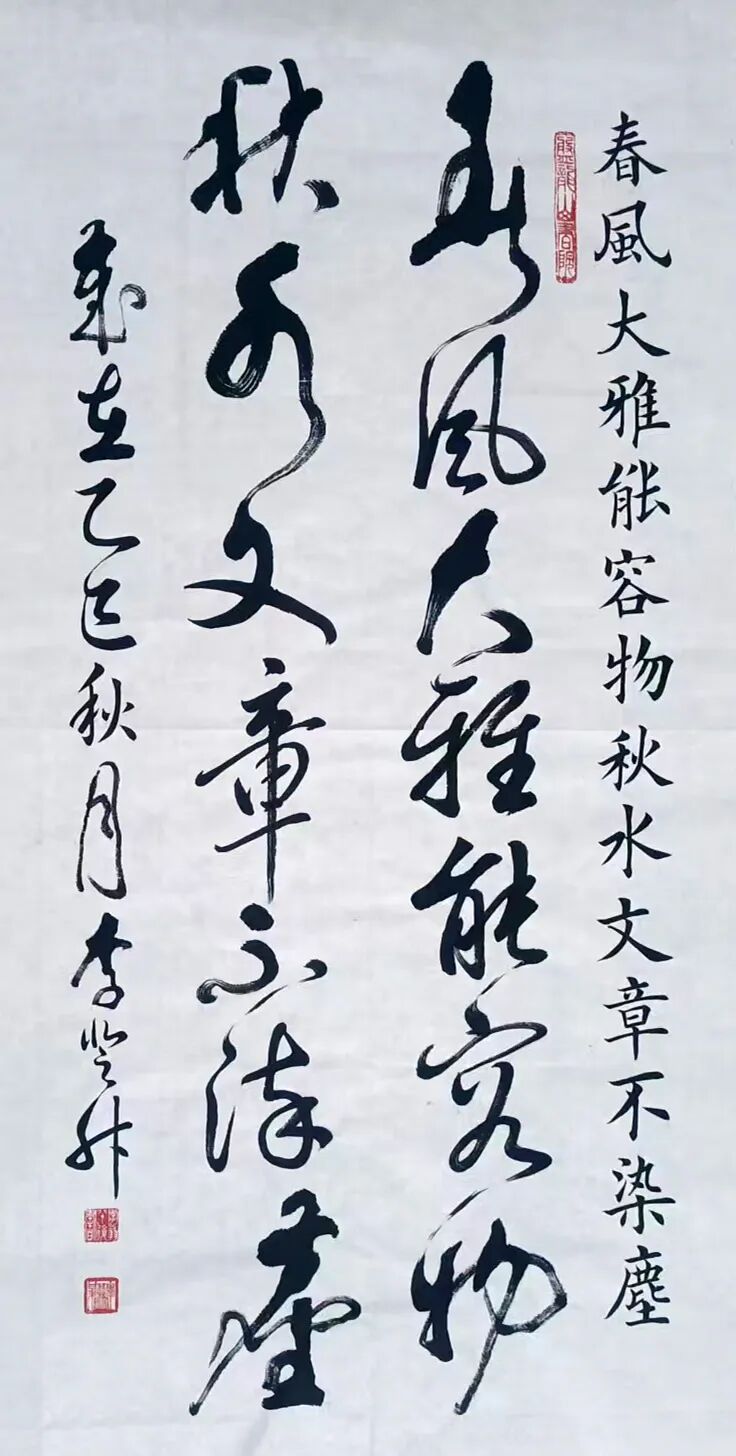 春風大雅能容物秋水文章不染塵
春风大雅能容物
秋水文章不染塵
歲在乙巳秋月李登舟